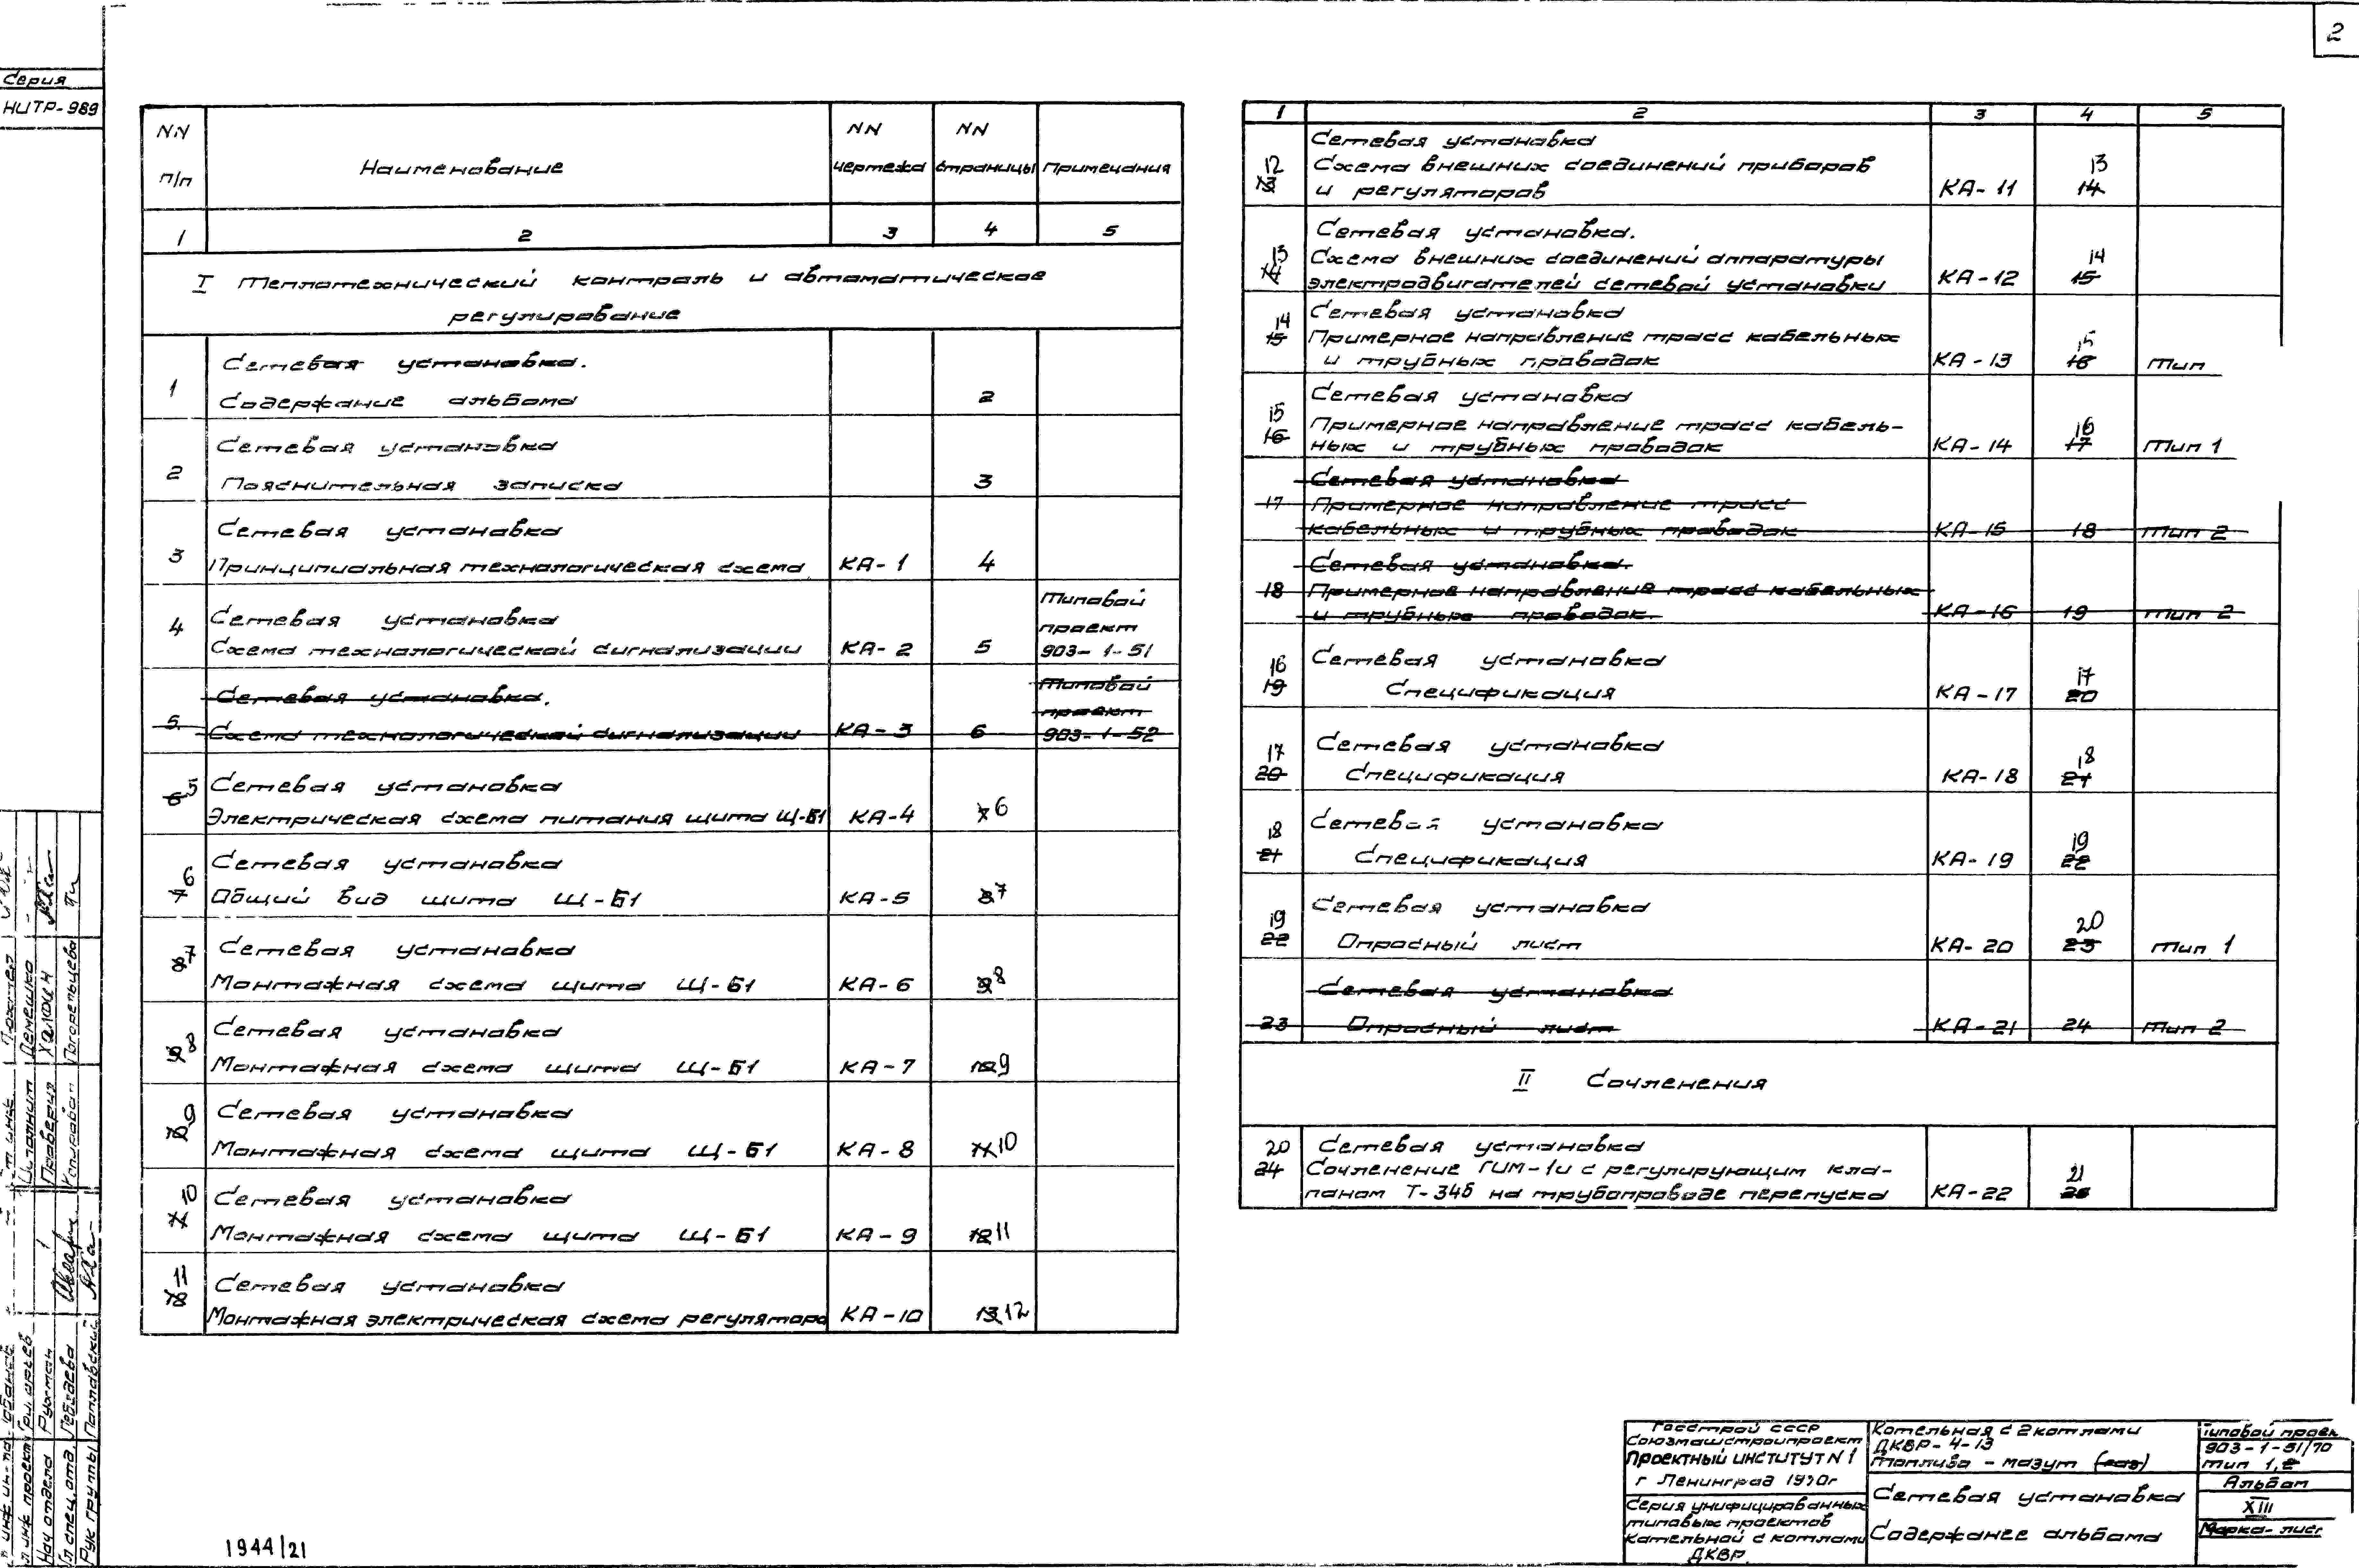 2
Серия
НИТР-989
NN п/п
Наименование
NN чертежа
NN страницы
Примечания
1 2 3 4 5
I Теплотехнический контроль и автоматическое
регулирование
1 Сетевая установка.
Содержание альбома 2
2 Сетевая установка
Пояснительная записка 3
3 Сетевая установка
Принципиальная технологическая схема КА-1 4
4 Сетевая установка
Схема технологической сигнализации КА-2 5
Типовой
проект
903-1-51
5 Сетевая установка.
Схема технологической сигнализации КА-3 6
Типовой
проект
903-1-52
6 5 Сетевая установка
Электрическая схема питания щита Щ-Б1 КА-4 7 6
7 6 Сетевая установка
Общий вид щита Щ-Б1 КА-5 8 7
8 7 Сетевая установка
Монтажная схема щита Щ-Б1 КА-6 9 8
9 8 Сетевая установка
Монтажная схема щита Щ-Б1 КА-7 10 9
10 9 Сетевая установка
Монтажная схема щита Щ-Б1 КА-8 11 10
11 10 Сетевая установка
Монтажная схема щита Щ-Б1 КА-9 12 11
12 11 Сетевая установка
Монтажная электрическая схема регулятора КА-10 13 12
1 2 3 4 5
Сетевая установка
12 Схема внешних соединений приборов 13
13 и регуляторов КА-11 14
Сетевая установка.
13 Схема внешних соединений аппаратуры 14
14 электродвигателей сетевой установки КА-12 15
14 Сетевая установка
15 Примерное направление трасс кабельных 15
и трубных проводок КА-13 16 Тип
15 Сетевая установка
16 Примерное направление трасс кабель- 16
ных и трубных проводок КА-14 17 Тип 1
Сетевая установка
17 Примерное направление трасс
кабельных и трубных проводок КА-15 18 Тип 2
Сетевая установка.
18 Примерное направление трасс кабельных
и трубных проводок. КА-16 19 Тип 2
16 Сетевая установка 17
19 Спецификация КА-17 20
17 Сетевая установка 18
20 Спецификация КА-18 21
18 Сетевая установка 19
21 Спецификация КА-19 22
19 Сетевая установка 20
22 Опросный лист КА-20 23 Тип 1
Сетевая установка
23 Опросный лист КА-21 24 Тип 2
II Сочленения
20 Сетевая установка
24 Сочленение ГИМ-1и с регулирующим кла- 21
паном Т-34б на трубопроводе перепуска КА-22 25
Исполнит Демешко
Проверил Халфин
Копировал Погорельцева
Нач отдела Рухман
Гл спец.отд. Лебзаева
Рук группы Поплавский
1944/21
Госстрой СССР
Союзмашстройпроект
Проектный институт N1
г Ленинград 1970г
Серия унифицированных
типовых проектов
котельной с котлами
ДКВР
Котельная с 2 котлами
ДКВР-4-13
Топливо - мазут (газ)
Сетевая установка
Содержанее альбома
Типовой проек
903-1-51/70
тип 1,2
Альбом
XIII
Марка-лист